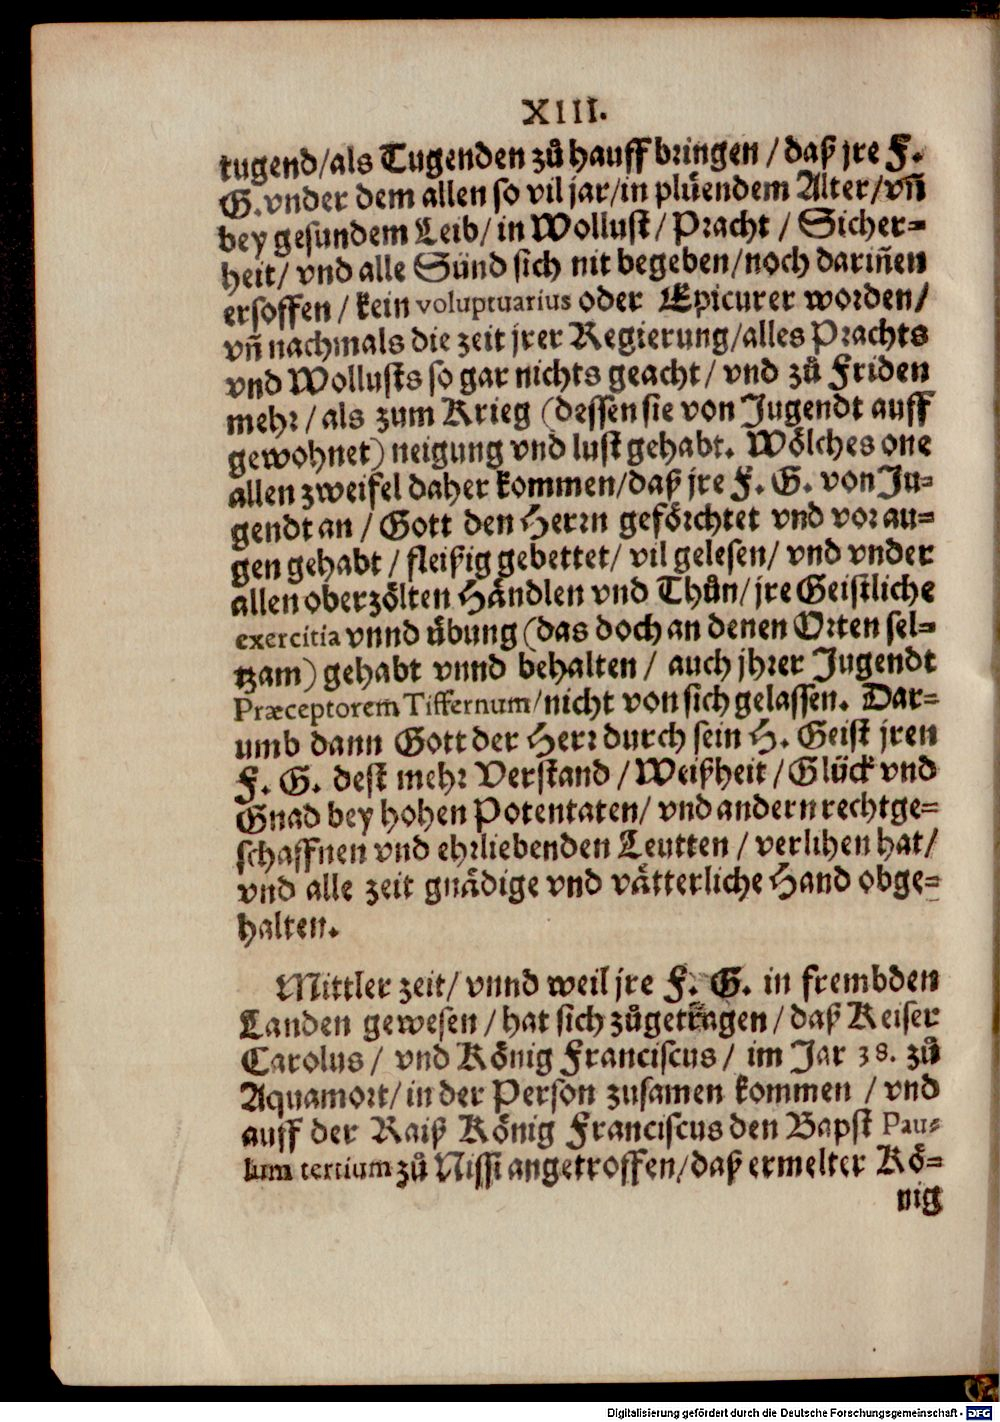 XIII.
tugend/als Tugenden zů hauff bringen / daß jre F.
G. vnder dem allen so vil jar/in plüendem Alter/vñ
bey gesundem Leib/ in Wollust / Pracht / Sicher-
heit/ vnd alle Sünd sich nit begeben/noch dariñen
ersoffen / kein voluptuarius oder Epicurer worden/
vñ nachmals die zeit jrer Regierung/alles Prachts
vnd Wollusts so gar nichts geacht/ vnd zů Friden
mehr/als zum Krieg (dessen sie von Jugendt auff
gewohnet) neigung vnd lust gehabt. Wölches one
allen zweifel daher kommen/daß jre F. G. von Ju-
gendt an / Gott den Herrn geförchtet vnd vor au-
gen gehabt / fleißig gebettet/ vil gelesen/ vnd vnder
allen oberzölten Händlen vnd Thůn/ jre Geistliche
exercitia vnnd übung (das doch an denen Orten sel-
tzam) gehabt vnnd behalten / auch jhrer Jugendt
Præceptorem Tiffernum/nicht von sich gelassen. Dar-
umb dann Gott der Herr durch sein H. Geist jren
F. G. dest mehr Verstand / Weißheit / Glück vnd
Gnad bey hohen Potentaten/ vnd andern rechtge-
schaffnen vnd ehrliebenden Leutten / verlihen hat/
vnd alle zeit gnädige vnd vätterliche Hand obge-
halten.
Mittler zeit/ vnnd weil jre F. G. in frembden
Landen gewesen / hat sich zůgetragen / daß Keiser
Carolus / vnd König Franciscus / im Jar 38. zů
Aquamort/ in der Person zusamen kommen / vnd
auff der Raiß König Franciscus den Bapst Pau-
lum tertium zů Nissi angetroffen/daß ermelter Kö-
nig
Digitalisierung gefördert durch die Deutsche Forschungsgemeinschaft - DFG